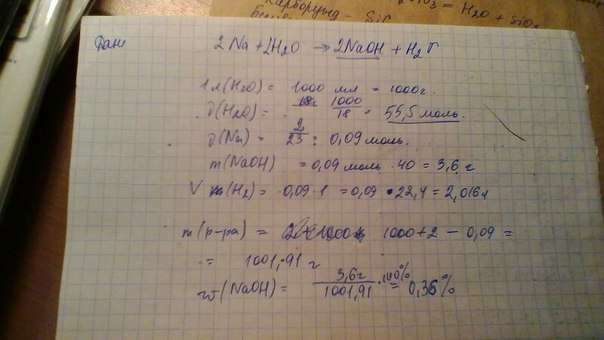 Карборунд - SiC
= H2O + SiO2
Дано
2Na + 2H2O → 2NaOH + H2↑
1л(H2O) = 1000 мл = 1000г.
ν(H2O) = 1000/18 = 55,5 моль.
ν(Na) = 2/23 = 0,09 моль.
m(NaOH) = 0,09 моль · 40 = 3,6 г
V (H2) = 0,09 · 1 = 0,09 · 22,4 = 2,016 л
m(р-ра) = 1000 + 2 - 0,09 =
= 1001,91 г
w(NaOH) = 3,6г/1001,91 · 100% = 0,36%